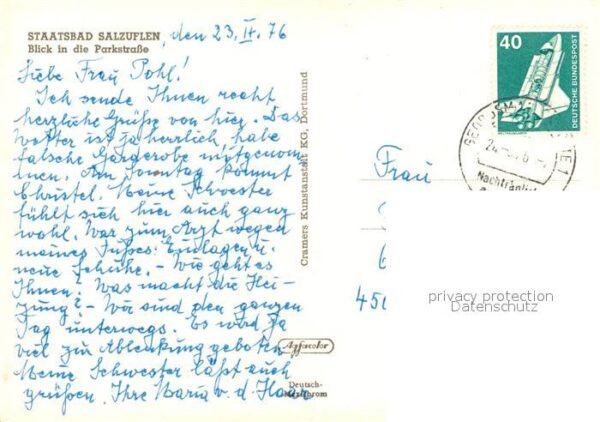 STAATSBAD SALZUFLEN, den 23. IV. 76
Blick in die Parkstraße
Liebe Frau Pohl!
Ich sende Ihnen recht
herzliche Grüße von hier. Das
Wetter ist ja herrlich, habe
falsche Garderobe mitgenom-
men. Am Sonntag kommt
Christel. Meine Schwester
fühlt sich hier auch ganz
wohl. War zum Arzt wegen
meines Fußes: Einlagen u.
neue Schuhe. - Wie geht es
Ihnen? Was macht die Hei-
zung? - Wir sind den ganzen
Tag unterwegs. Es wird ja
viel zur Ablenkung geboten.
Meine Schwester läßt auch
grüßen. Ihre Maria v. d. Haar
Cramers Kunstanstalt KG, Dortmund
Agfacolor
Deutsch-
40
DEUTSCHE BUNDESPOST
Frau
privacy protection
Datenschutz